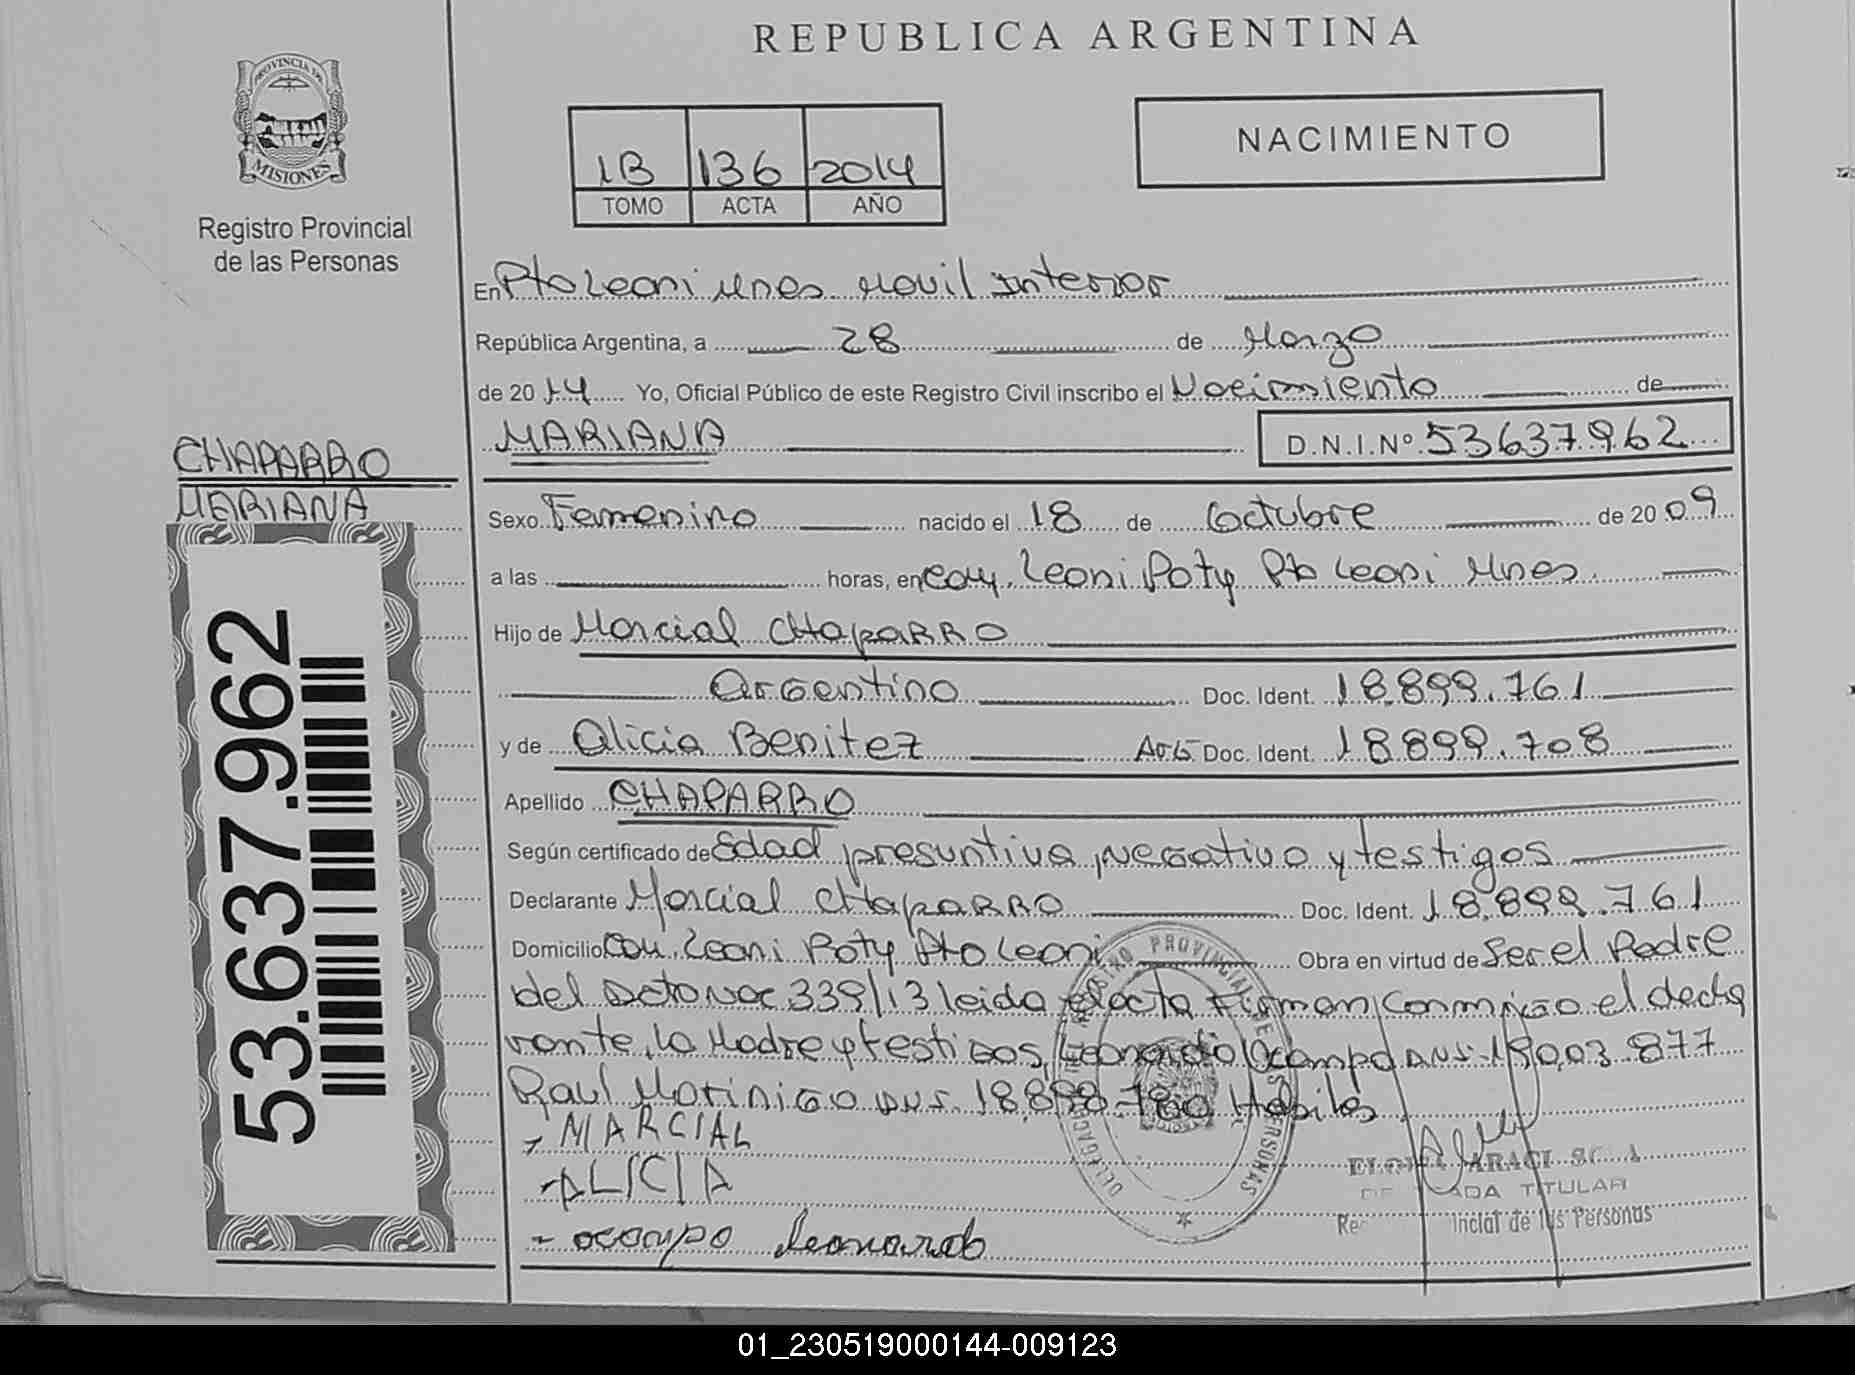 REPUBLICA ARGENTINA
PROVINCIA DE
MISIONES
Registro Provincial
de las Personas
1B 136 2014
TOMO ACTA AÑO
NACIMIENTO
En Pto Leoni Mnes Movil Interior
República Argentina, a 28 de Marzo
de 2014 Yo, Oficial Público de este Registro Civil inscribo el Nacimiento de
MARIANA D.N.I.Nº 53637962
CHAPARRO
MARIANA
53.637.962
Sexo Femenino nacido el 18 de Octubre de 2009
a las horas, en Com. Leoni Poty Pto Leoni Mnes
Hijo de Marcial CHAPARRO
Argentino Doc. Ident. 18.899.761
y de Alicia Benitez Arg Doc. Ident. 18899.708
Apellido CHAPARRO
Según certificado de Edad presuntiva, negativo y testigos
Declarante Marcial CHAPARRO Doc. Ident. 18.899.761
Domicilio Com. Leoni Poty Pto Leoni Obra en virtud de Ser el Padre
del Dcto Nac 339/13 leida el acta Firman Conmigo el decla
rante, la Madre y testigos, Leonardo Ocampo DNI 19003.877
Raul Motinigo DNI 18.898.780 Habiles
- MARCIAL
- ALICIA
- ocampo Leonardo
REGISTRO PROVINCIAL DE LAS PERSONAS
DELEGACION
ARACI
TITULAR
de las Personas
01_230519000144-009123